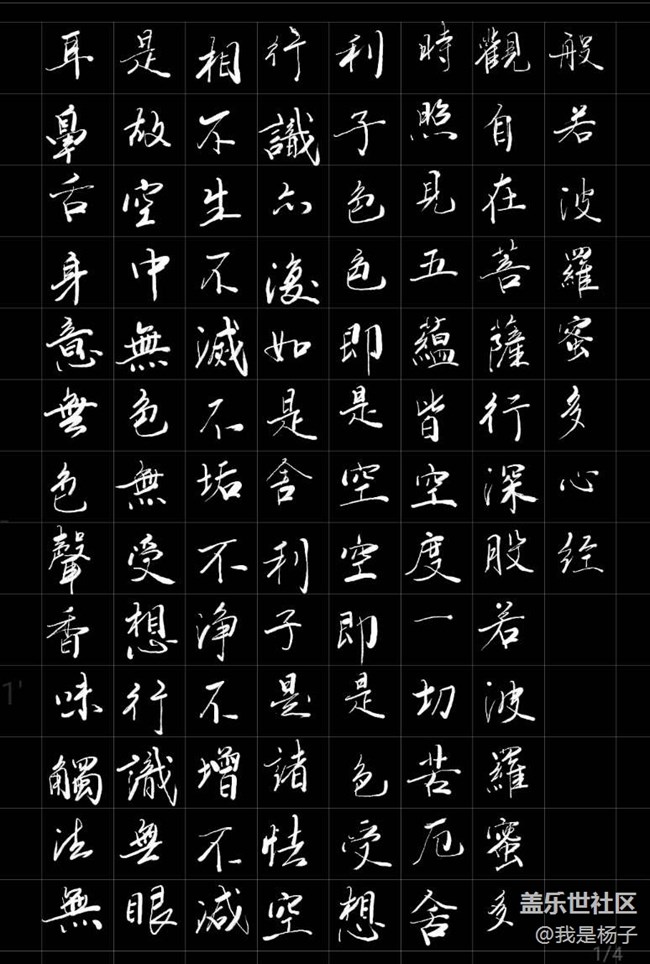 般若波羅蜜多心经
觀自在菩薩行深般若波羅蜜多
時照見五蘊皆空度一切苦厄舍
利子色色即是空空即是色受想
行識亦復如是舍利子是諸法空
相不生不滅不垢不净不增不减
是故空中無色無受想行識無眼
耳鼻舌身意無色聲香味觸法無
盖乐世社区
@我是杨子
1/4